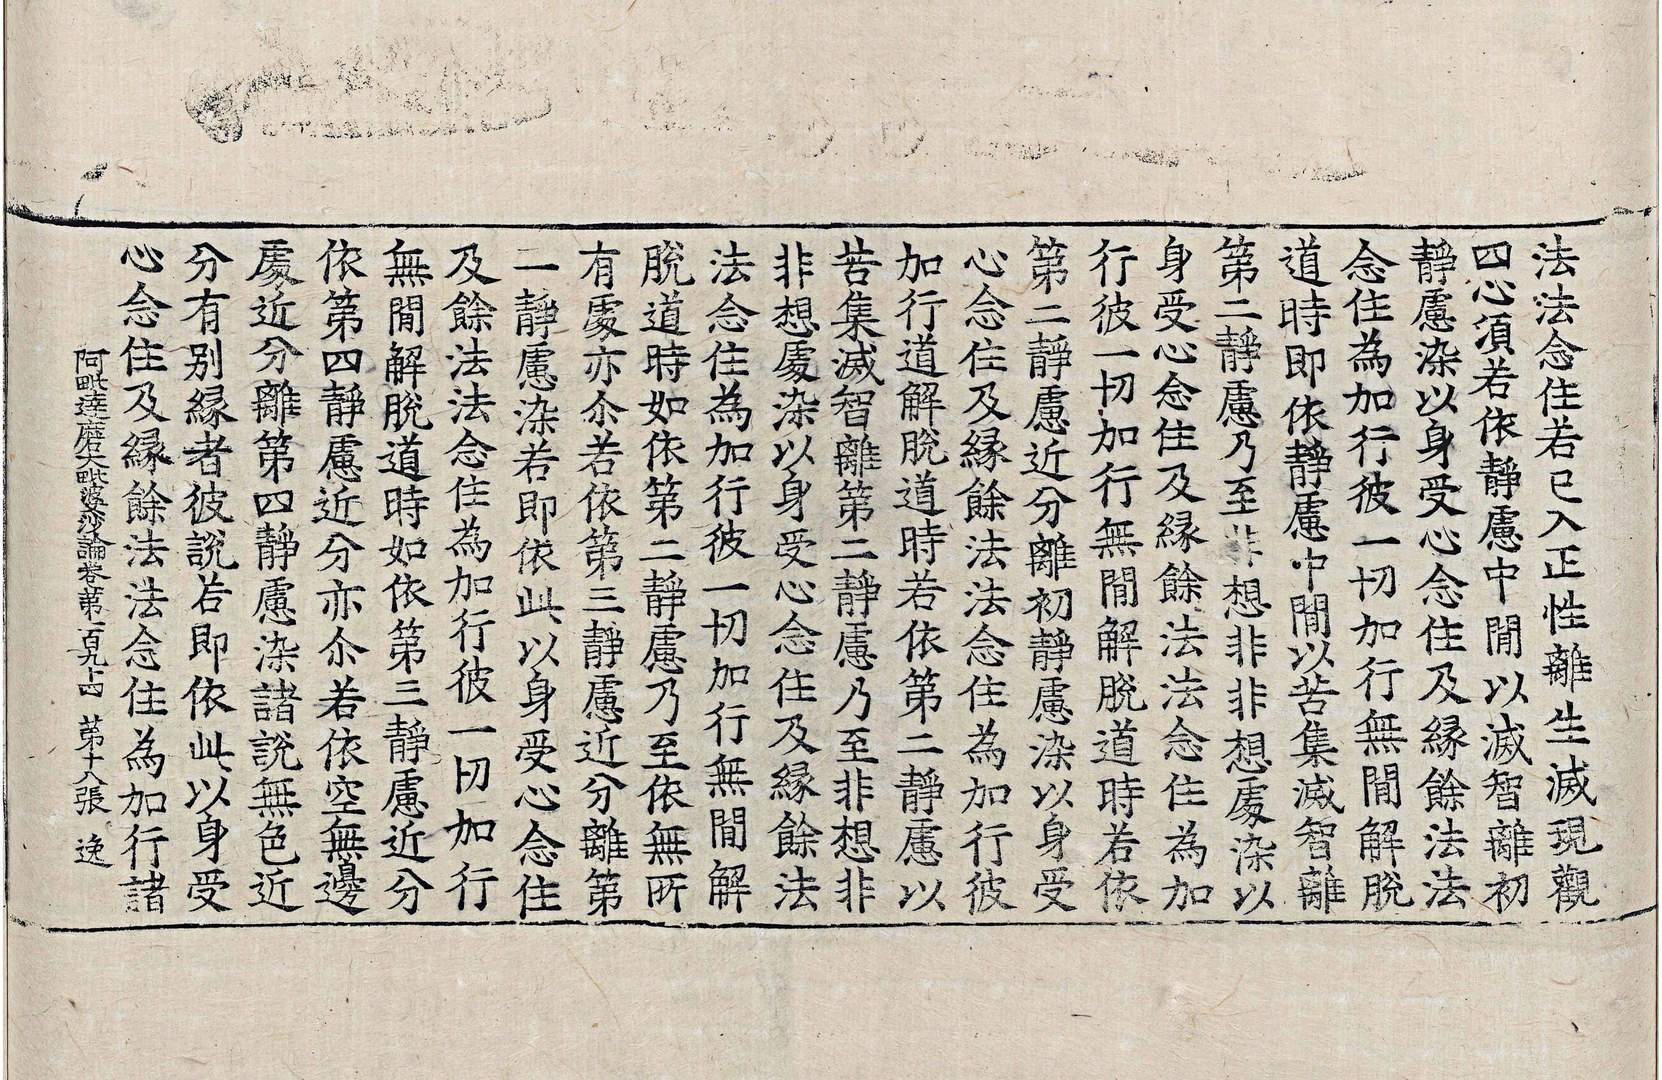 法法念住若已入正性離生滅現觀
四心須若依靜慮中閒以滅智離初
靜慮染以身受心念住及緣餘法法
念住為加行彼一切加行無閒解脫
道時即依靜慮中閒以苦集滅智離
第二靜慮乃至非想非非想處染以
身受心念住及緣餘法法念住為加
行彼一切加行無閒解脫道時若依
第二靜慮近分離初靜慮染以身受
心念住及緣餘法法念住為加行彼
加行道解脫道時若依第二靜慮以
苦集滅智離第二靜慮乃至非想非
非想處染以身受心念住及緣餘法
法念住為加行彼一切加行無閒解
脫道時如依第二靜慮乃至依無所
有處亦尒若依第三靜慮近分離第
二靜慮染若即依此以身受心念住
及餘法法念住為加行彼一切加行
無閒解脫道時如依第三靜慮近分
依第四靜慮近分亦尒若依空無邊
處近分離第四靜慮染諸說無色近
分有別緣者彼說若即依此以身受
心念住及緣餘法法念住為加行諸
阿毗達磨大毗婆沙論卷第一百九十四 第十八張 逸